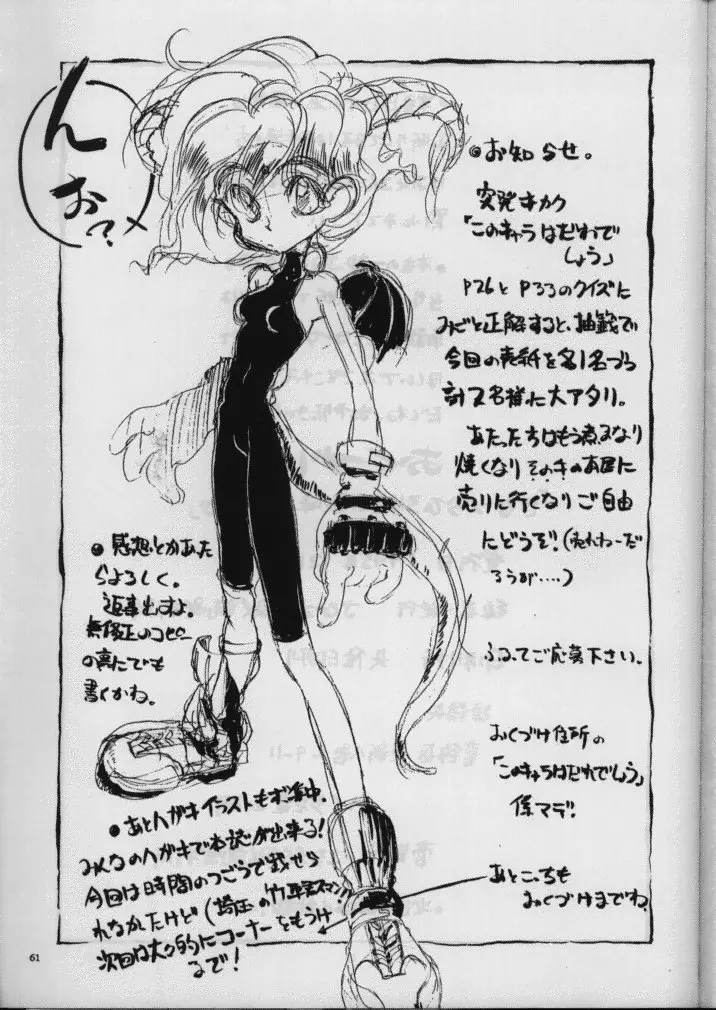 ん
お?
●お知らせ。
突発キカク
「このキャラはだれで
しょう」
P26とP33のクイズに
みごと正解すると、抽籤で
今回の表紙を各1名づつ
計2名様に大アタリ。
あたったらはもう煮るなり
焼くなりそのキのお店に
売りに行くなりご自由
にどうぞ!(売れねーだ
ろうが....)
ふるってご応募下さい。
おくづけ住所の
「このキャラはだれでしょう」
係マデ!
あとこっちも
おくづけまでね。
●感想とかあた
らよろしく。
返事出すよ。
無修正のコピー
の裏にでも
書くかね。
●あとハガキイラストもボ集中.
みんなのハガキで本誌が出来る!
今回は時間のつごうで載せら
れなかたけど(埼玉の竹
スマン!!)
次回は大々的にコーナーをもうけ
るで!
61